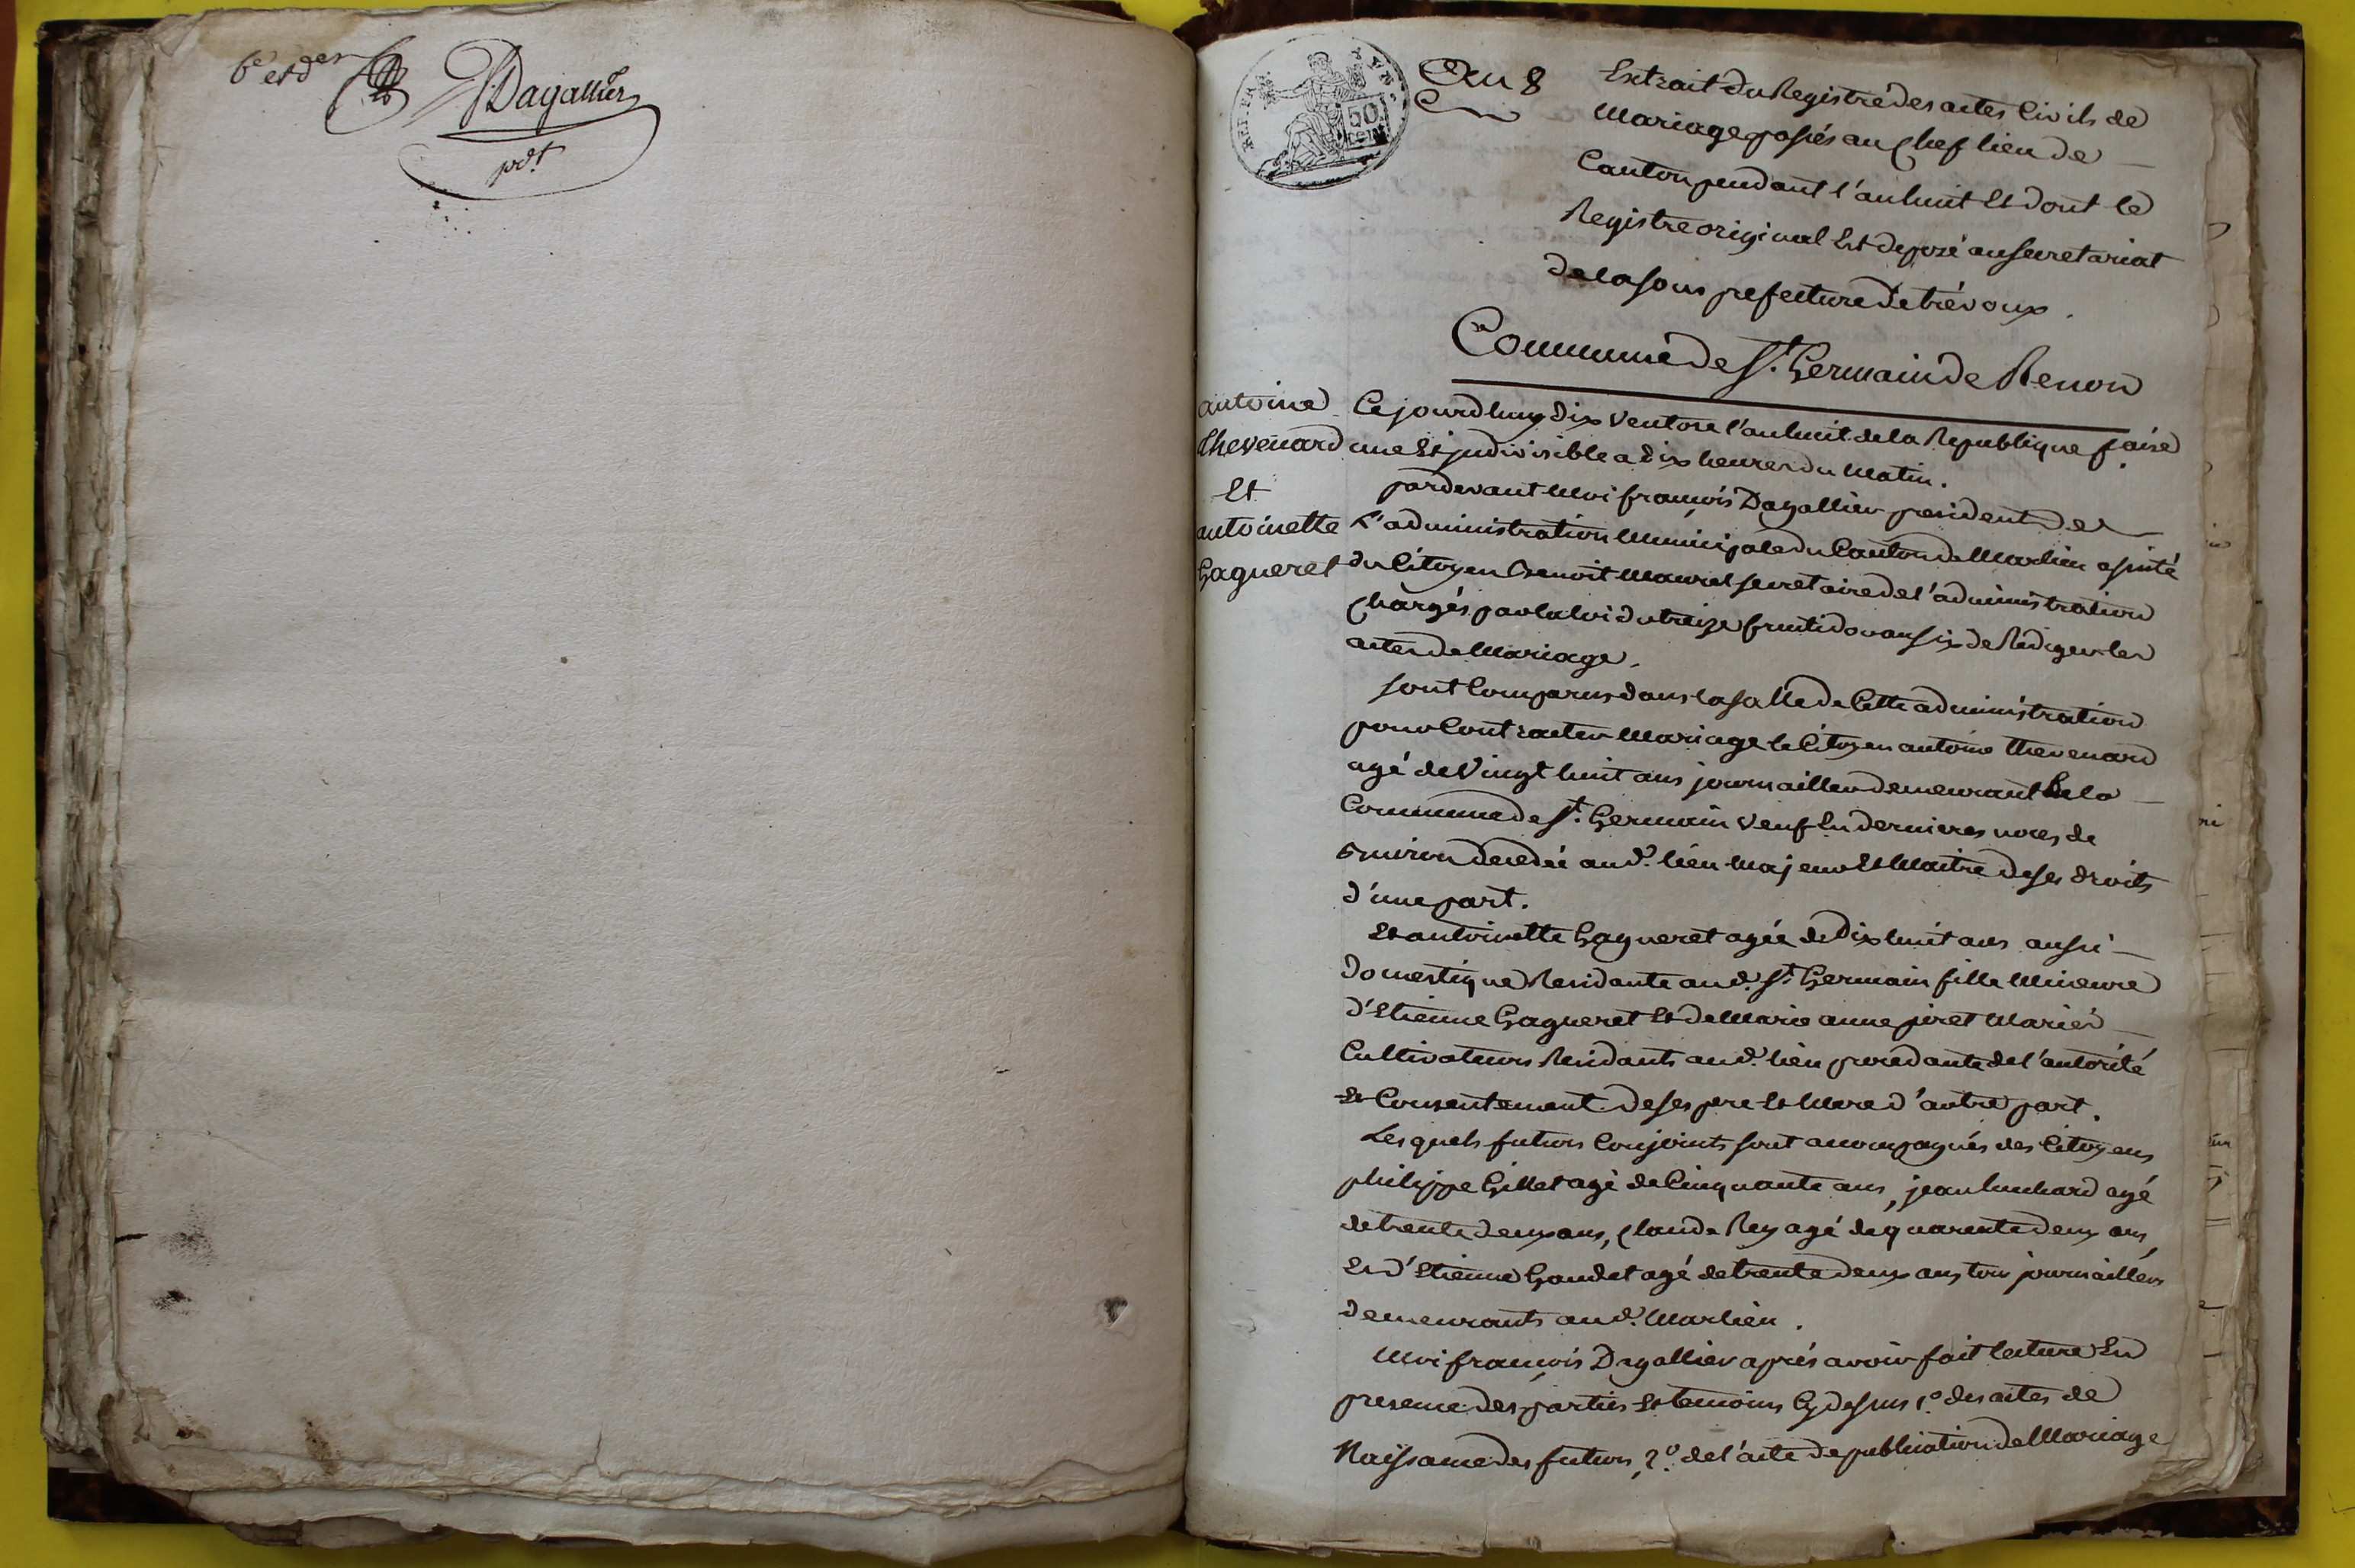 6e et der
Dagallier
pdt
REP. FRA.
50
CENT
An 8
Extrait du Registre des actes Civils de
Mariage passés au Chef lieu de
Canton pendant l'an huit Et dont le
Registre original Est deposé au secretariat
de la sous prefecture de trévoux.
Commune de St. Germain de Renon
antoine
thevenard
Et
antoinette
Gagneret
Ce jourd'huy dix Ventose l'an huit de la Republique faise
une Et indivisible a dix heures du Matin.
pardevant Moi françois Dagallier president de
L'administration Municipale du Canton de Marlieu assisté
du Citoyen Benoit Maurel secretaire de l'administration
Chargés par la loi du treize fructidor an six de Rediger les
actes de Mariage.
sont Comparus dans la salle de Cette administration
pour Contracter Mariage le Citoyen antoine thevenard
agé de Vingt huit ans journaillier demeurant la
Commune de St. Germain veuf En dernieres noces de
decedée aud. lieu Majeur Et Maitre de ses droits
d'une part.
Et antoinette Gagneret agée de Dix huit ans aussi
domestique Residante aud. St. Germain fille Mineure
d'Etienne Gagneret Et de Marie anne piret Mariés
Cultivateurs Residants aud. lieu procedante de l'autorité
Et Consentement de ses pere Et Mere d'autre part.
Lesquels futurs Conjoints sont accompagnés des Citoyens
philippe Gillet agé de Cinquante ans, jean agé
de trente deux ans, Claude Rey agé de quarente deux ans,
Et d'Etienne Gaudet agé de trente deux ans tous journailliers
demeurants aud. Marlieu.
Moi françois Dagallier aprés avoir fait lecture En
presence des parties Et temoins Cy dessus 1o. des actes de
Naissance des futurs, 2o. de l'acte de publication de Mariage